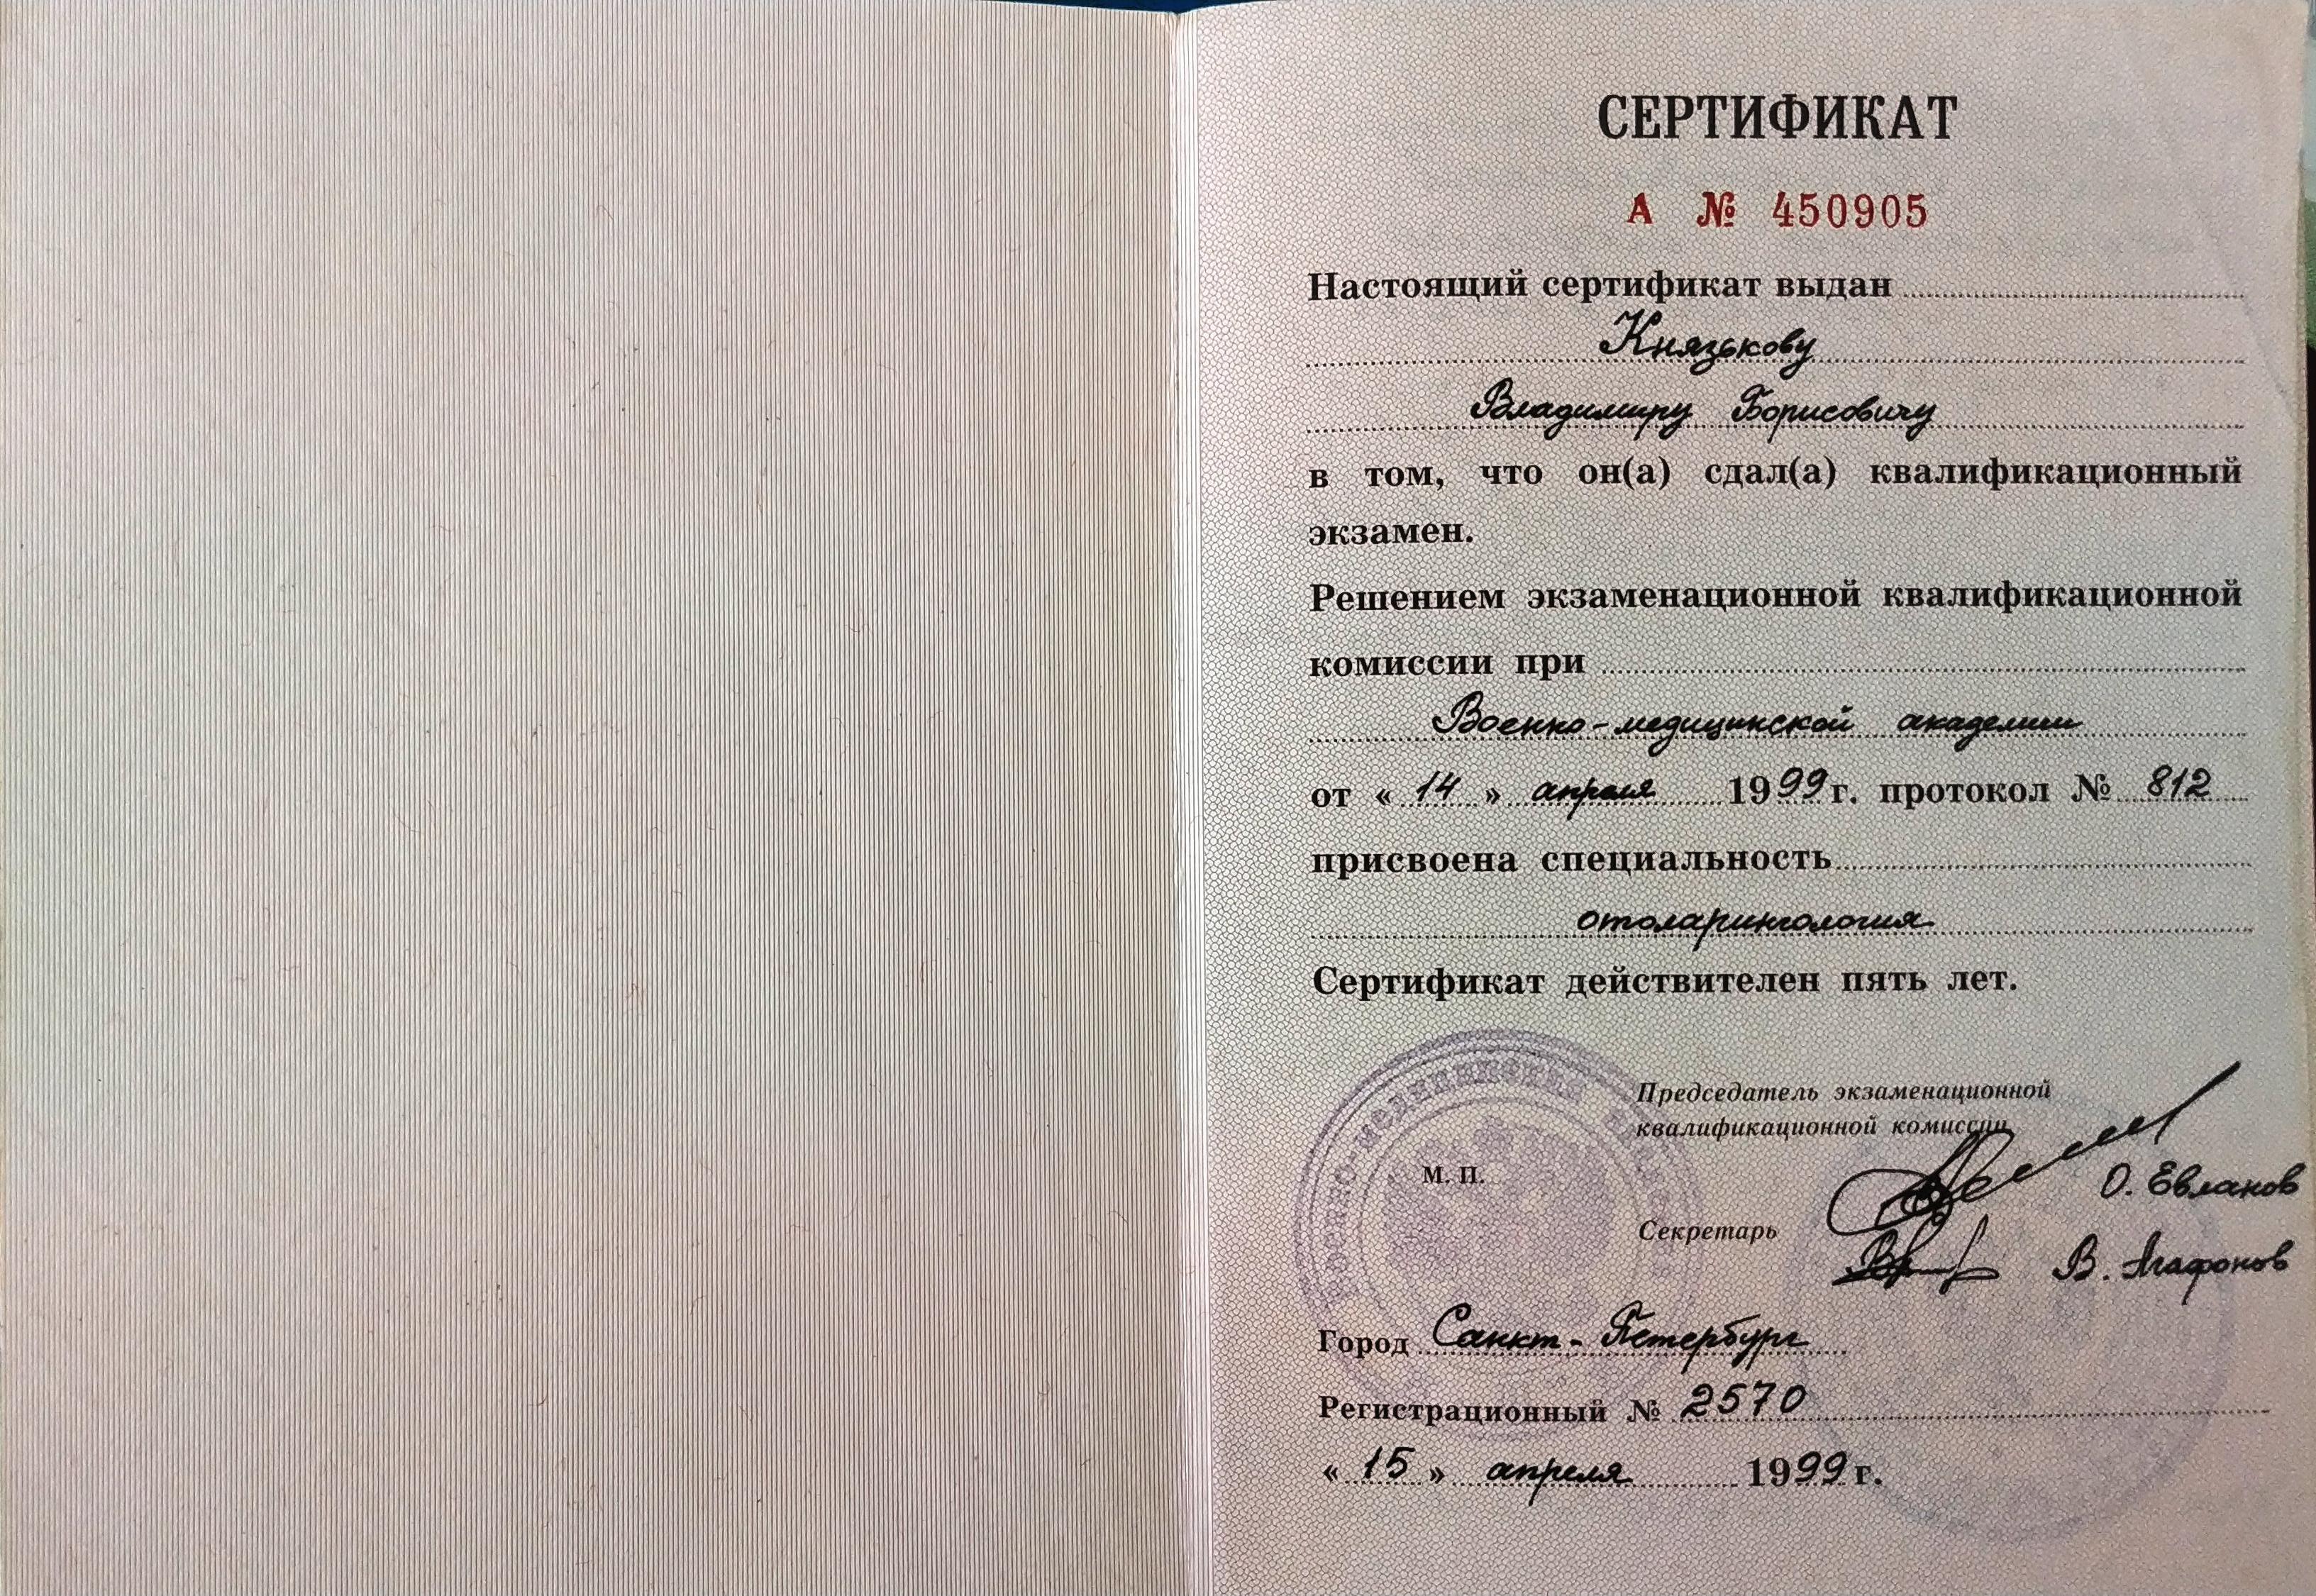 СЕРТИФИКАТ
А № 450905
Настоящий сертификат выдан
Князькову
Владимиру Борисовичу
в том, что он(а) сдал(а) квалификационный
экзамен.
Решением экзаменационной квалификационной
комиссии при
Военно-медицинской академии
от « 14 » апреля 1999 г. протокол № 812
присвоена специальность
отоларингология
Сертификат действителен пять лет.
Председатель экзаменационной
квалификационной комиссии
М. П.
О. Евланов
Секретарь
В. Агафонов
Город Санкт-Петербург
Регистрационный № 2570
« 15 » апреля 1999 г.